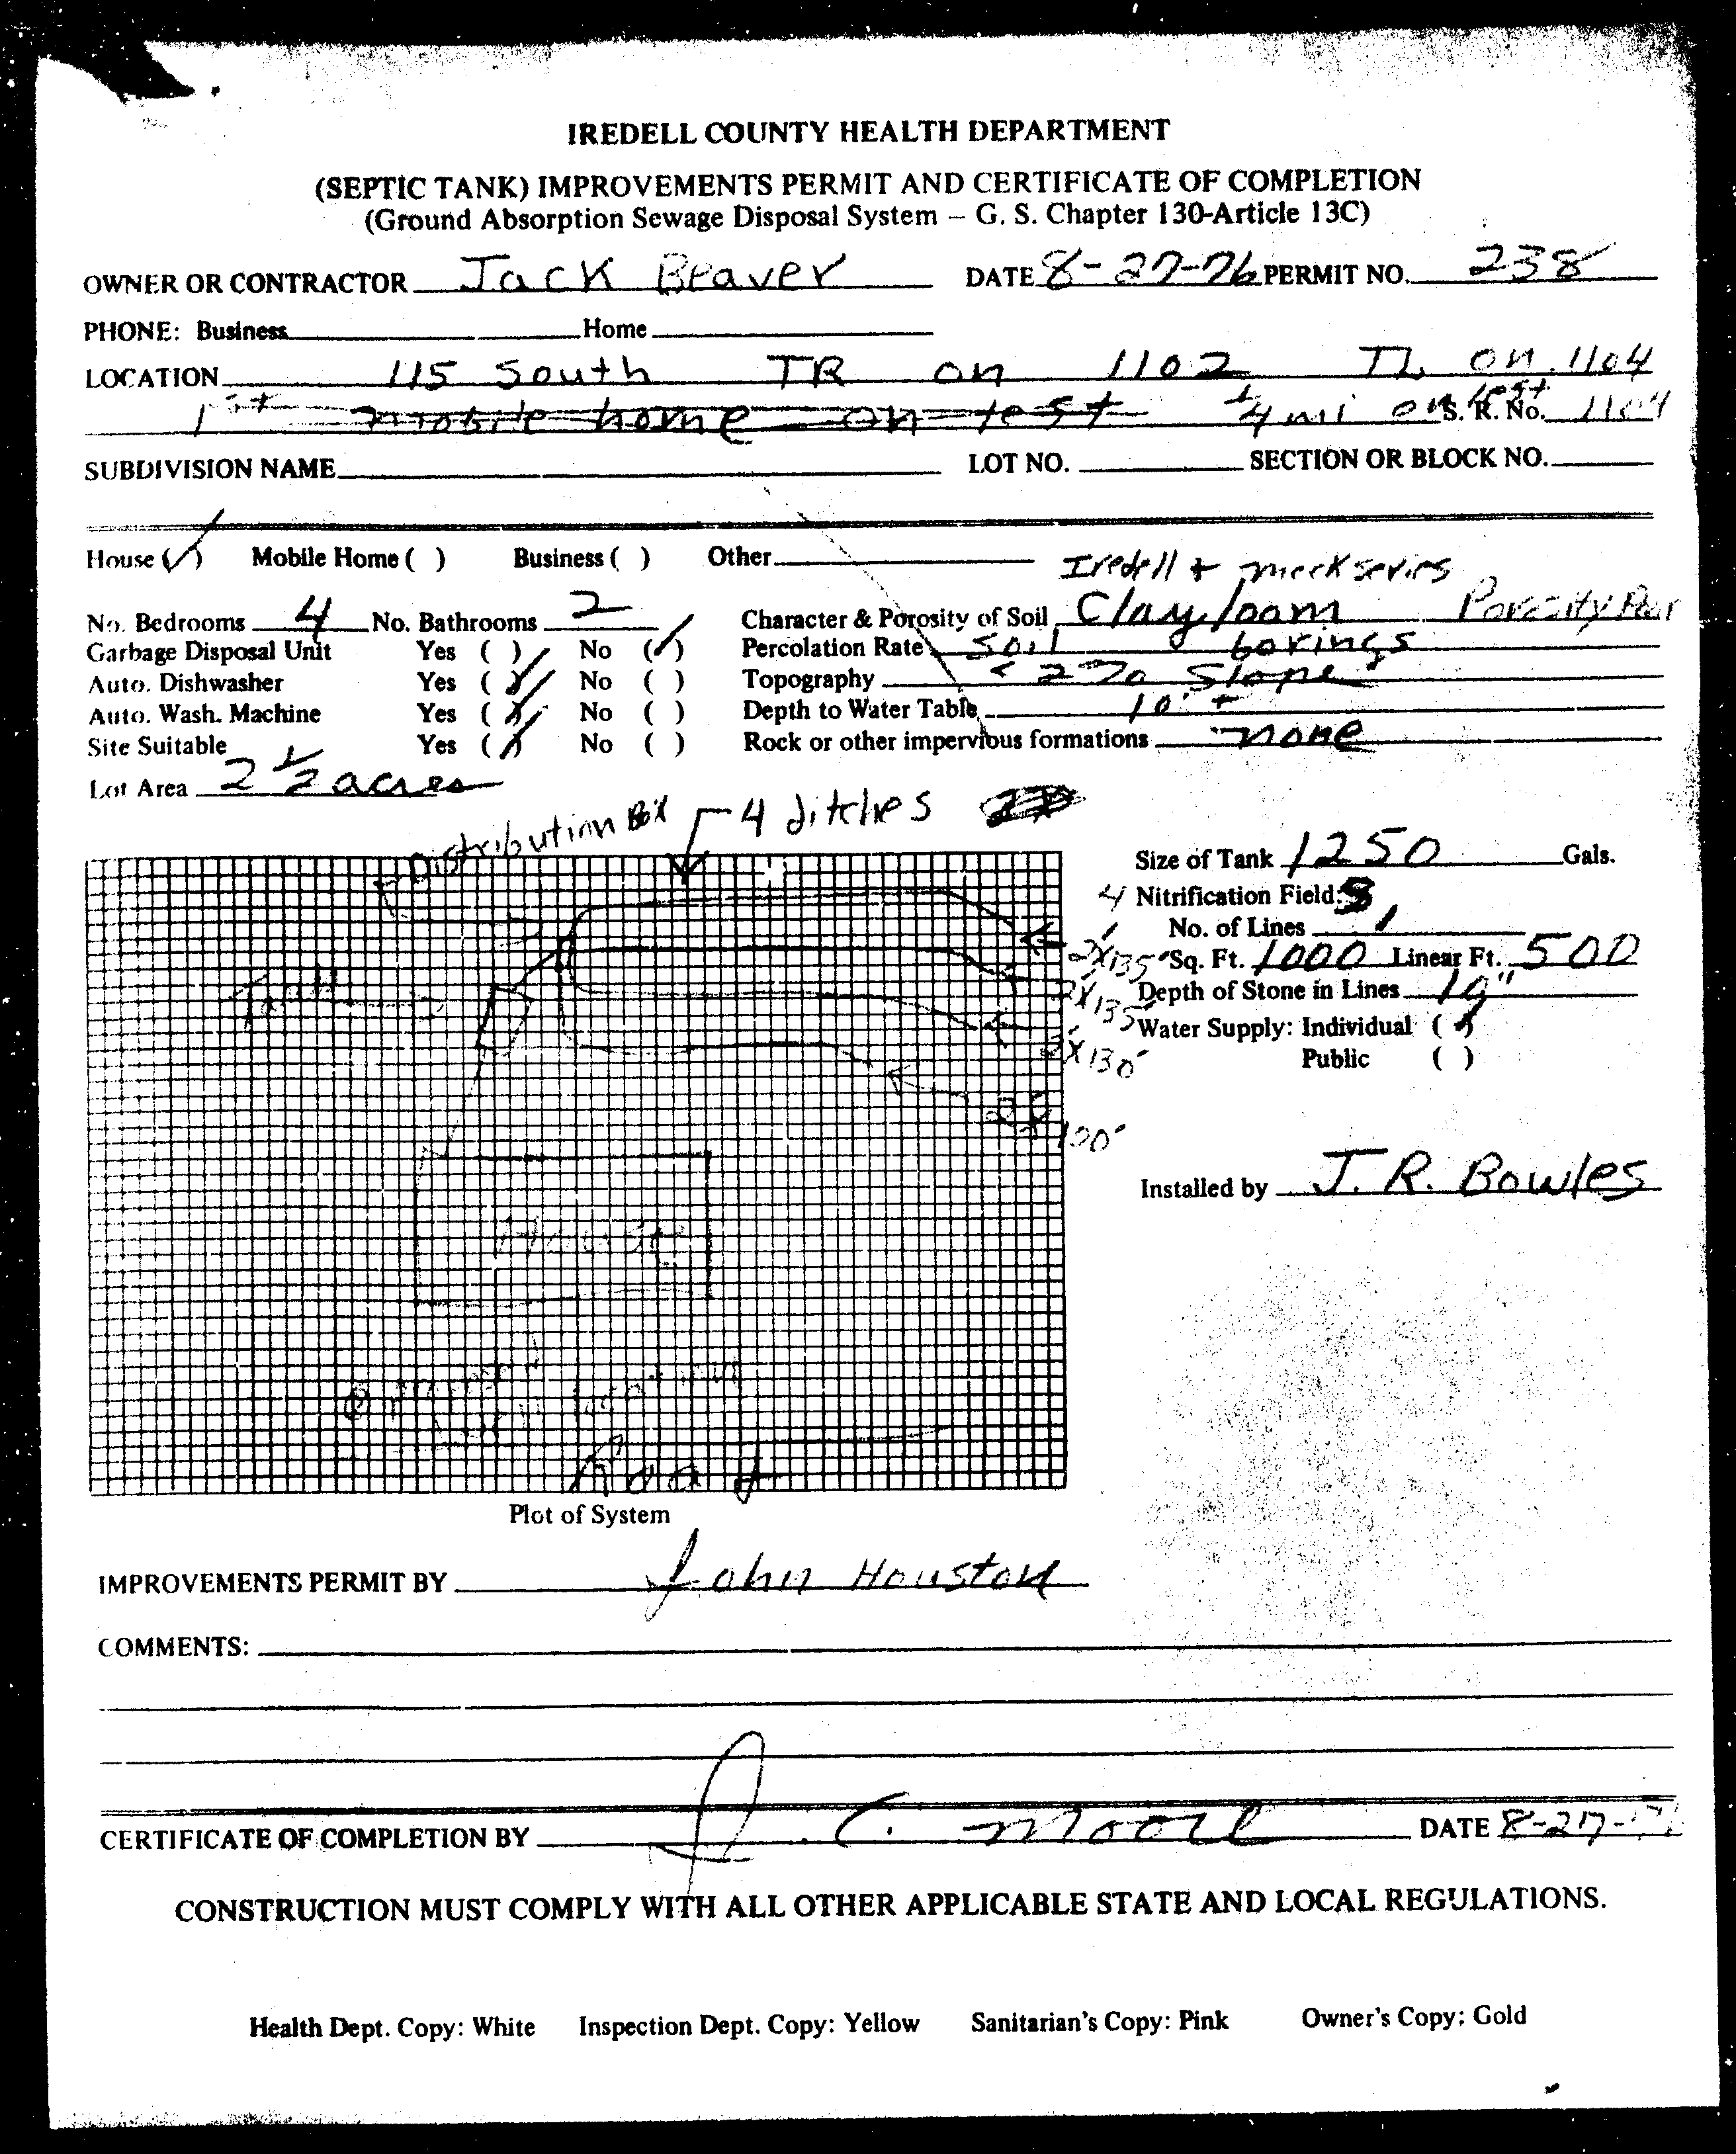 IREDELL COUNTY HEALTH DEPARTMENT
(SEPTIC TANK) IMPROVEMENTS PERMIT AND CERTIFICATE OF COMPLETION
(Ground Absorption Sewage Disposal System — G. S. Chapter 130-Article 13C)
OWNER OR CONTRACTOR Jack Beaver DATE 8-27-76 PERMIT NO. 238
PHONE: Business Home
LOCATION 115 South TR on 1102 TL on 1104
1st mobile home on left 1/4 mi on left S. R. No. 1104
SUBDIVISION NAME LOT NO. SECTION OR BLOCK NO.
House (✓) Mobile Home ( ) Business ( ) Other
Iredell + meck series
No. Bedrooms 4 No. Bathrooms 2 Character & Porosity of Soil Clay loam Porosity Poor
Garbage Disposal Unit Yes ( ) No (✓) Percolation Rate Soil borings
Auto. Dishwasher Yes (✓) No ( ) Topography < 2% Slope
Auto. Wash. Machine Yes (✓) No ( ) Depth to Water Table 10' +
Site Suitable Yes (✓) No ( ) Rock or other impervious formations none
Lot Area 2 1/2 acres
Distribution Box 4 ditches
Size of Tank 1250 Gals.
4 Nitrification Field:
No. of Lines
2'x135' Sq. Ft. 1000 Linear Ft. 500
2'x135' Depth of Stone in Lines
Tank
Water Supply: Individual (✓)
Public ( )
x130'
100'
Installed by J. R. Bowles
House
Road
Plot of System
IMPROVEMENTS PERMIT BY John Houston
COMMENTS:
CERTIFICATE OF COMPLETION BY J. C. Moore DATE 8-27-
CONSTRUCTION MUST COMPLY WITH ALL OTHER APPLICABLE STATE AND LOCAL REGULATIONS.
Health Dept. Copy: White Inspection Dept. Copy: Yellow Sanitarian's Copy: Pink Owner's Copy: Gold